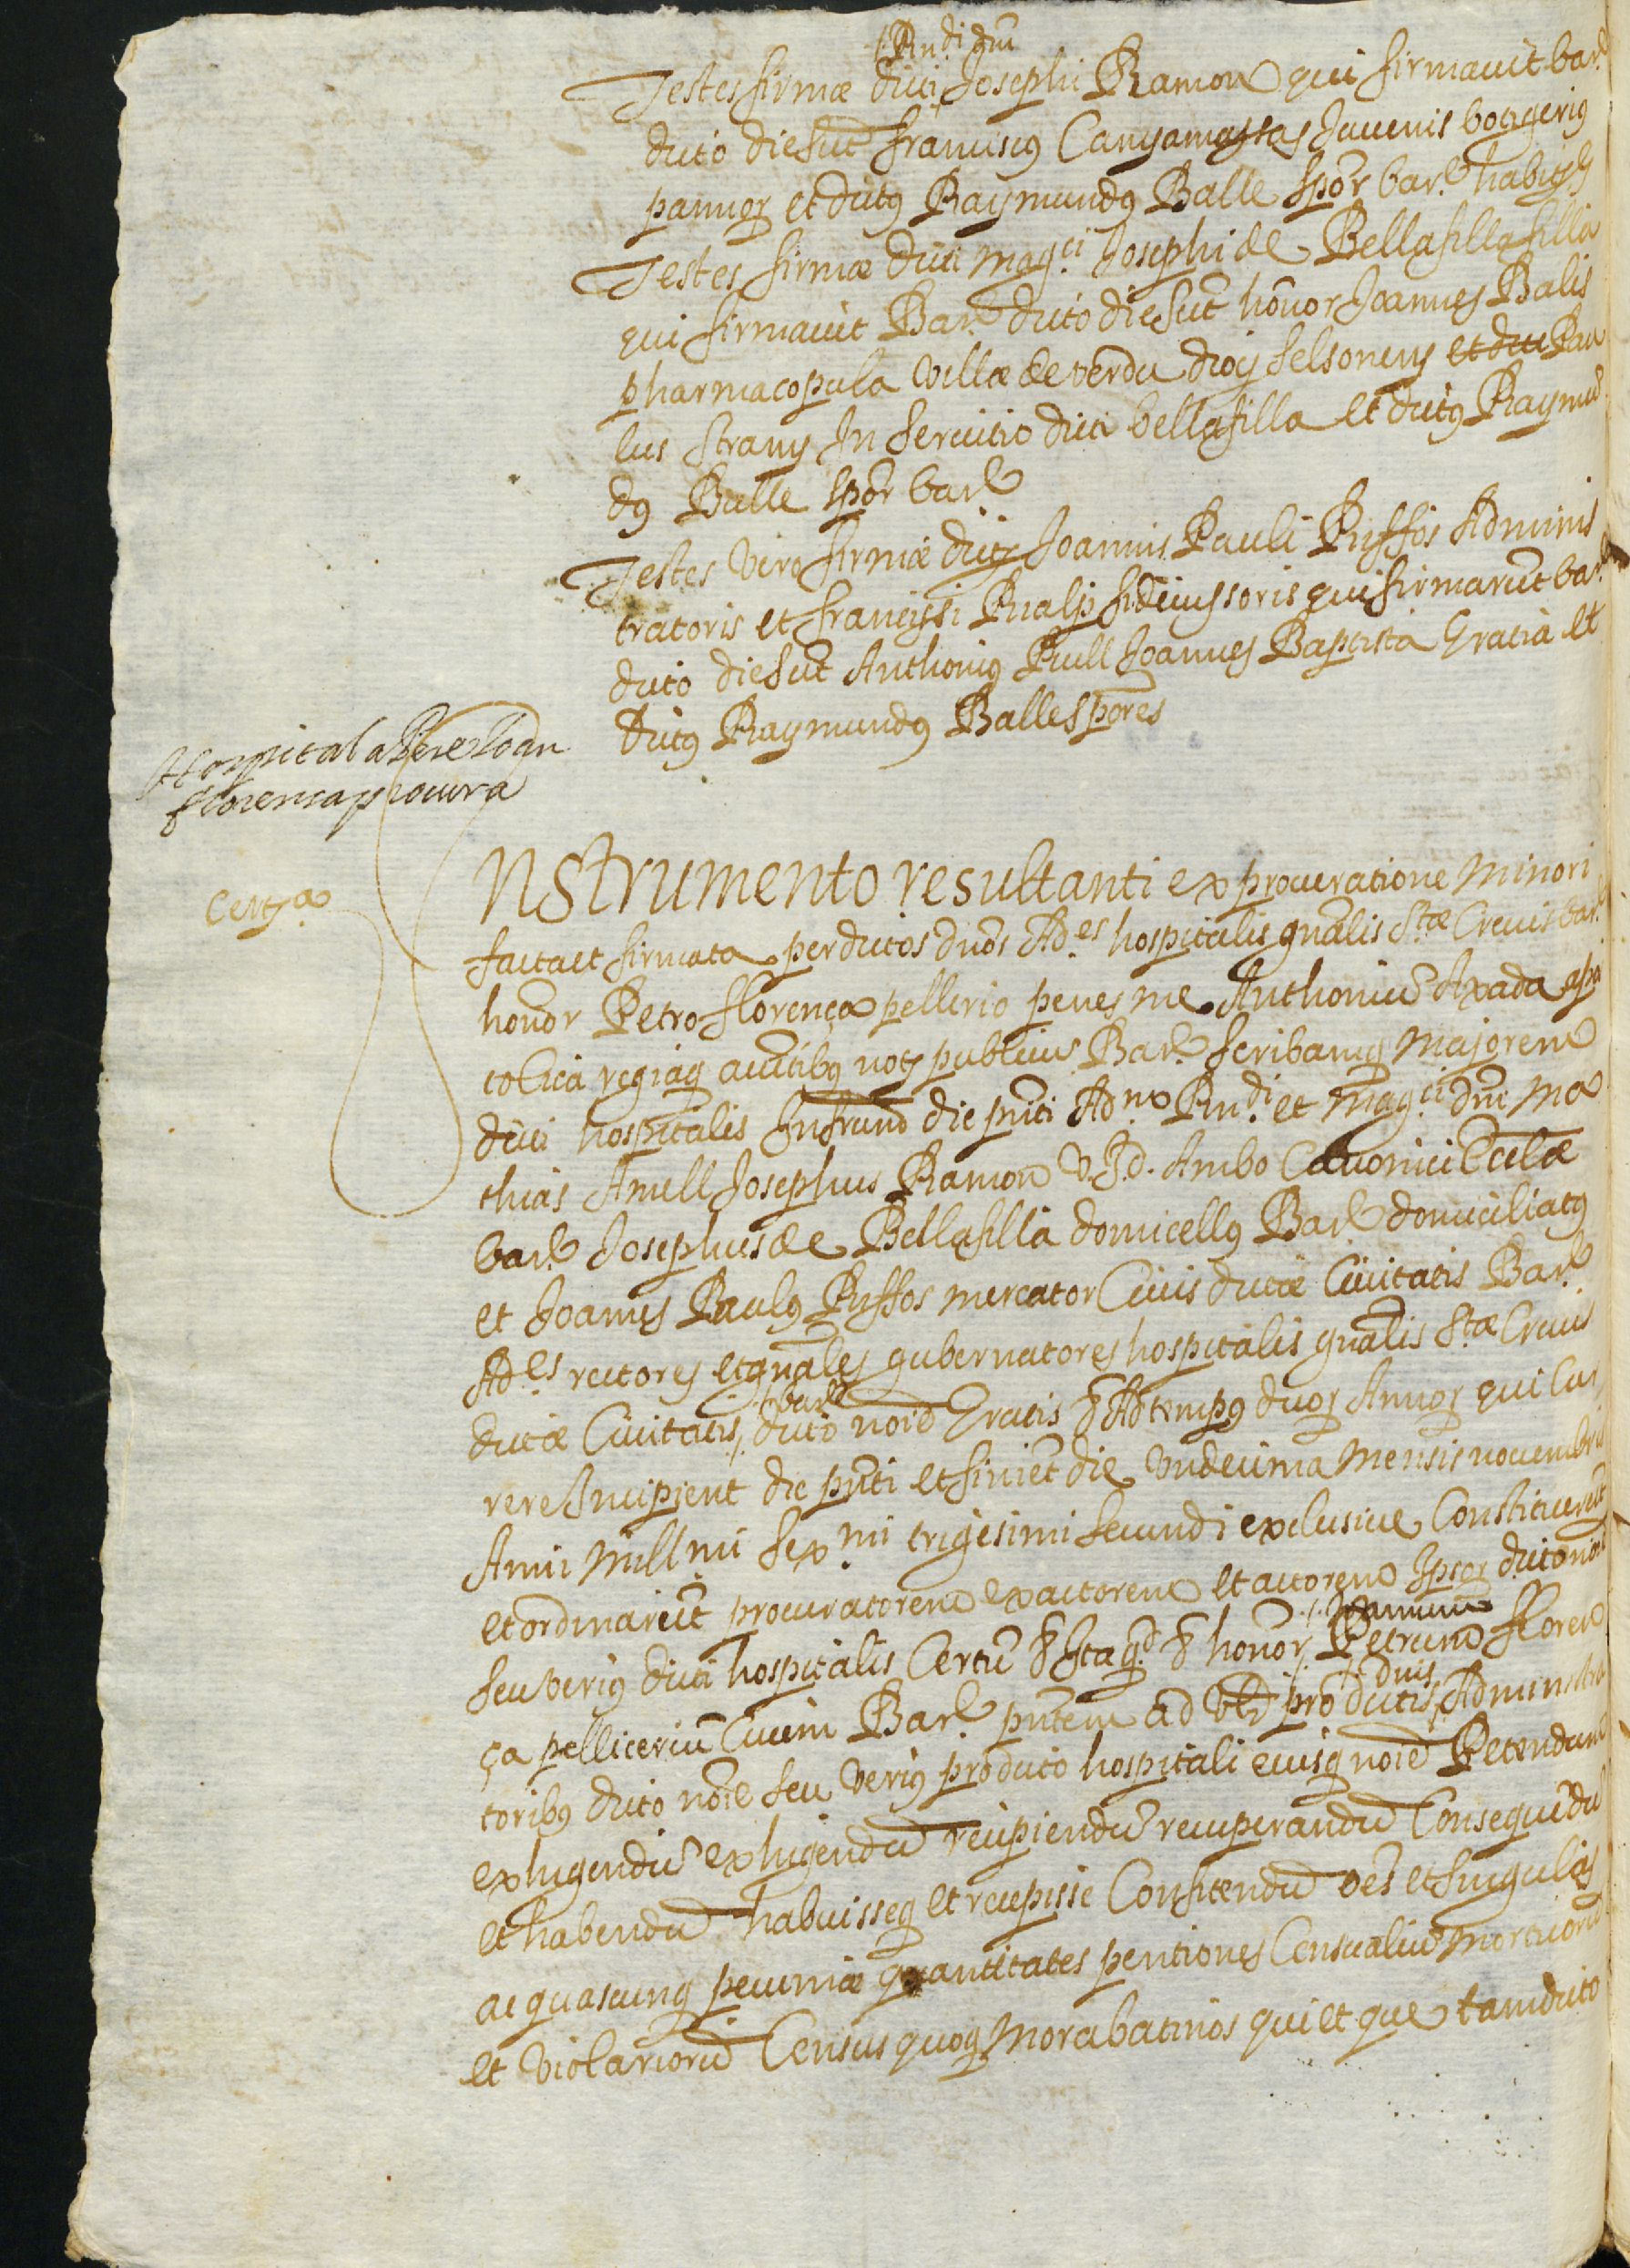 /Rndi dni
Testes firmæ dicti, Josephi Ramon qui firmavit barᵃ
dicto die sut̃ franciscus Canyamassas Juvenis botigerius
pannoꝝ et dictus Raymundus Balle sp̃or barᵉ habitꝭ
Testes firmæ dicti magᶜⁱ Josephi de Bellafilla filla
qui firmavit Barᵉ dicto die sut̃ hõnor Joannes Balis
pharmacopula villæ de verdu diocis selsonen̄ et dict Pau
lus strany In servitio dicti bellafilla et dictus Raymũ
dus Balle sp̃or barᵉ
Testes vero firmæ dictoꝝ Joannis Pauli Riffos Adminis
tratoris et francissi Rialp fideiussoris qui firmarũt barᵉ
dicto die sut̃ Anthonius Rull Joannes Baptista Gratia et
dictus Raymundus Balle sp̃ores
Hospital a Pere Joan
florensa procura
NSTrumento resultanti ex procuratione minori
Certᵃ
facta et firmata per dictos dños Adᵉˢ hospitalis gñalis Stæ Crucis barᵉ
hoñor Petro florença pellerio penes me Anthoniũ Axada apos
tolica regiaq̃ auctibus notꝭ publicus Barᵉ scribamq̃ majorem
dicti hospitalis Infrascᵐ die p̃nti Adⁿᵒ Rndi et magᶜⁱ dñi Ma
thias Amell Josephus Ramon V.J.d. Ambo Canonici Ecclæ
barᵉ Josephus de Bellafilla domicellus Barᵉ domiciliatus
et Joannes Paulus Riffos mercator Civis dictæ Civitatis Barᵉ
Adᵉˢ rectores et gñales gubernatores hospitalis gñalis Stæ Crucis
/barᵉ
dictæ Civitatis, dicto noïe Gratis & Ad tempus duoꝝ Annoꝝ qui Cur
rere Incipient die p̃nti et finiet̃ die Undecima mensis novembris
Anni millᵐⁱ sexᵐⁱ trigesimi secundi exclusive Constituerũt
et ordinarũt procuratorem exactorem et actorem Ipsoꝝ dicto noïe
/Joannem
seu verius dicti hospitalis Certũ & Ita q̃d & hoñor, Petrum Floren
/dñis
ça pelliceriũ Civem Barᵉ p̃ntem ad Vlt̃ pro dictis, Administra
toribus dicto noïe seu verius pro dicto hospitali eiusq̃ noïe Petendum
exhigendũ exhigendũ recipiendũ recuperandũ Consequẽdũ
et habendũ habuisseq̃ et recepisse Confitendũ oẽs et singulas
ac quascunq̃ pecuniæ quantitates pentiones Censualiũ mortuorũ
et violariorũ Census quoq̃ morabatinos qui et que tam dicto